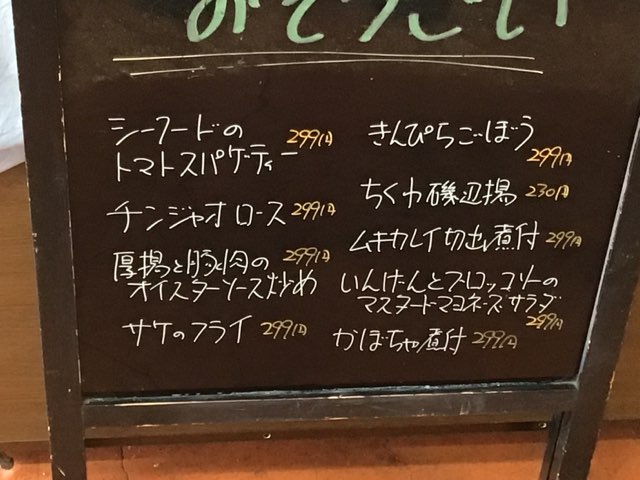 おそうざい
シーフードの
トマトスパゲティー 299円
チンジャオロース 299円
厚揚と豚肉の 299円
オイスターソース炒め
サケのフライ 299円
きんぴらごぼう
299円
ちくわ磯辺揚 230円
ムキカレイ切出し煮付 299円
いんげんとブロッコリーの
マスタードマヨネーズサラダ
299円
かぼちゃ煮付 299円